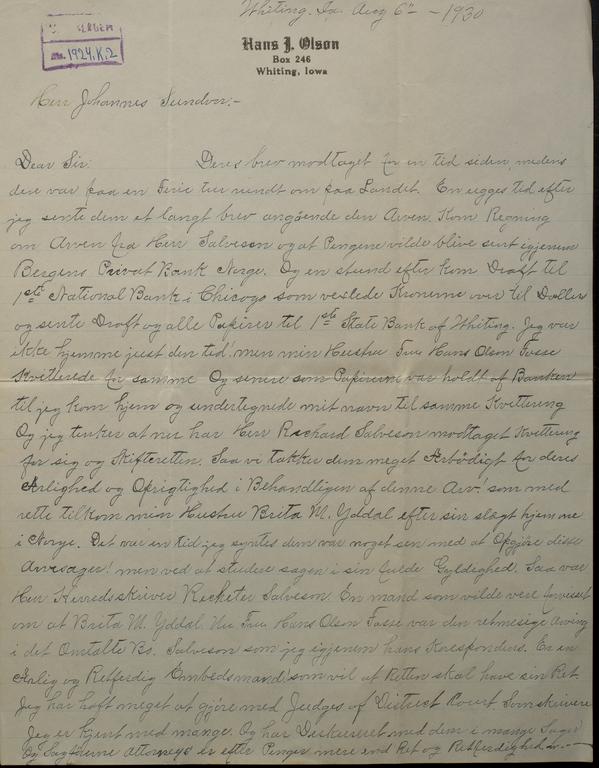 Whiting, Ia. Aug 6th - 1930
1924.K.2
Hans J. Olson
Box 246
Whiting, Iowa
Herr Johannes Sundvor.-
Dear Sir: Deres brev modtaget for en tid siden, medens
dere var paa en Ferie tur rundt om paa Landet. En ugges tid efter
jeg sente dem et langt brev angående den Arven. Kom Regning
om Arven fra Herr Salveson og at Pengene vilde blive sent igjenem
Bergens Privat Bank Norge. Og en stund efter kom Draft til
1ste National Bank i Chicogo som vexlede Kronerne over til Doller
og sente Draft og alle Papirer til 1ste State Bank of Whiting. Jeg var
ikke hjemme just den tid! men min Hustru Fru Hans Olson Fosse
Kvitterede for samme Og senere som Papirerne var holdt af Banken
til jeg kom hjem og undertegnede mit navn til samme Kvittering
Og jeg tenker at nu har Herr Richard Salveson modtaget Kvittering
for sig og Skifteretten. Saa vi takker dem meget Ærbødigt for deres
Ærlighed og Oprigtighed i Behandligen af denne Arv! som med
rette tilkom min Hustru Brita M. Yddal efter sin slægt hjemme
i Norge. Det var en tid jeg syntes dem var noget sen med at Opgjøre disse
Arvesager! men ved at studere sagen i sin fulde Gyldeghed. Saa var
Herr Salveson. En mand som vilde vere forvisset
om at Brita M. Yddal. Nu Fru Hans Olson Fosse var den retmesige Arving
i det Omtalte Bo. Salveson som jeg igjenem hans Korespondens. Er en
Ærlig og Retferdig Embedsmand! som vil at Retten skal have sin Ret.
Jeg har haft meget at gjøre med Judges of District Court Somskrivere
Jeg er kjent med mange. Og har Diskuseret med dem i mange Sager
Og Sagførere Attorneys er efter Penger mere end Ret og Retferdighed